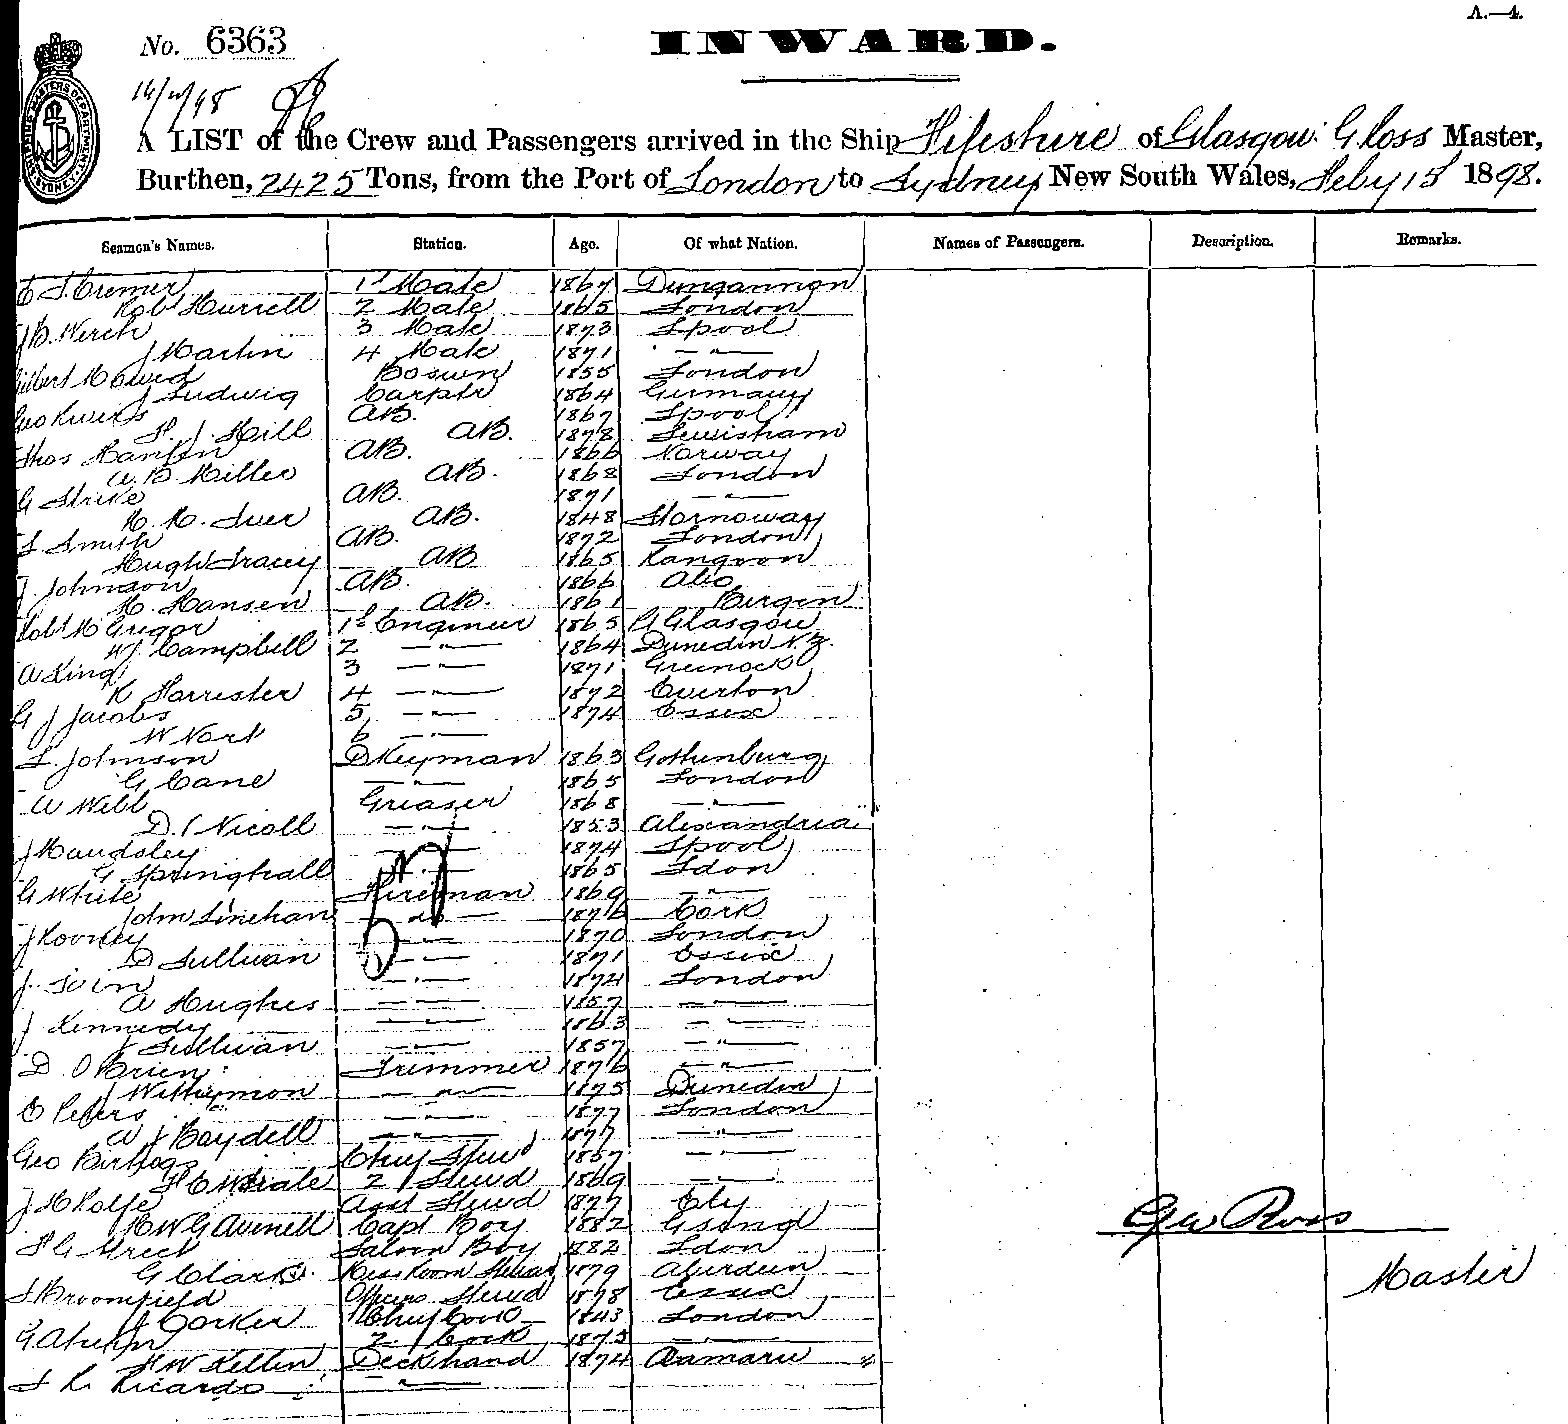 A.—4.
No. 6363
INWARD.
A LIST of the Crew and Passengers arrived in the Ship Fifeshire of Glasgow G Ross Master,
Burthen, 2425 Tons, from the Port of London to Sydney New South Wales, Feby 15 1898.
Seamen's Names. Station. Age. Of what Nation. Names of Passengers. Description. Remarks.
Cremer 1st Mate 1867 Dungannon
Robt Hurrell 2 Mate 1865 London
3 Mate 1873 Lpool
J Martin 4 Mate 1871 — " —
Bosun 1855 London
J Ludwig Carptr 1864 Germany
AB. 1867 Lpool
H. J. Hill AB. 1878 Lewisham
Thos AB. 1866 Norway
A. B. Miller AB. 1868 London
G Strike AB. 1871 — " —
AB. 1848 Stornoway
Smith AB. 1872 London
Hugh Tracey AB. 1865 Rangoon
J. Johnson AB. 1866 Abo
H. Hansen AB. 1861 Bergen
Robt McGregor 1st Engineer 1865 Glasgow
W J Campbell 2 — " — 1864 Dunedin N.Z.
A King 3 — " — 1871 Greenock
4 — " — 1872 Everton
G J Jacobs 5 — " — 1874 Essex
W 6 — " —
Johnson DKeyman 1863 Gothenburg
G Cane — " — 1865 London
A Webb Greaser 1868 — " —
D. Nicoll — " — 1853 Alexandria
J Maudsley — " — 1874 Lpool
G Springhall — " — 1865 Ldon
G White Fireman 1869 — " —
John Linehan — " — 1876 Cork
J Rooney — " — 1870 London
D Sullivan — " — 1871 Essex
J. — " — 1874 London
A Hughes — " — 1857 — " —
J Kennedy — " — 1863 — " —
J Sullivan — " — 1857 — " —
D. O Brien Trimmer 1876 — " —
J — " — 1875 Dunedin
Peters — " — 1877 London
A J Baydell — " — 1877 — " —
Geo Chief Stewd 1857 — " —
2 Stewd 1869 — " —
J H Rolfe Asst Stewd 1877 Ely
H W G Capt Boy 1882
Saloon Boy 1882 Ldon
G Clark Mess Room Steward 1879 Aberdeen
Broomfield Officers Stewd 1878 Essex
J Corker Chief Cook 1843 London
G 2 Cook 1873 — " —
H W Deckhand 1874 Oamaru
Ricardo — " —
G W Ross
Master